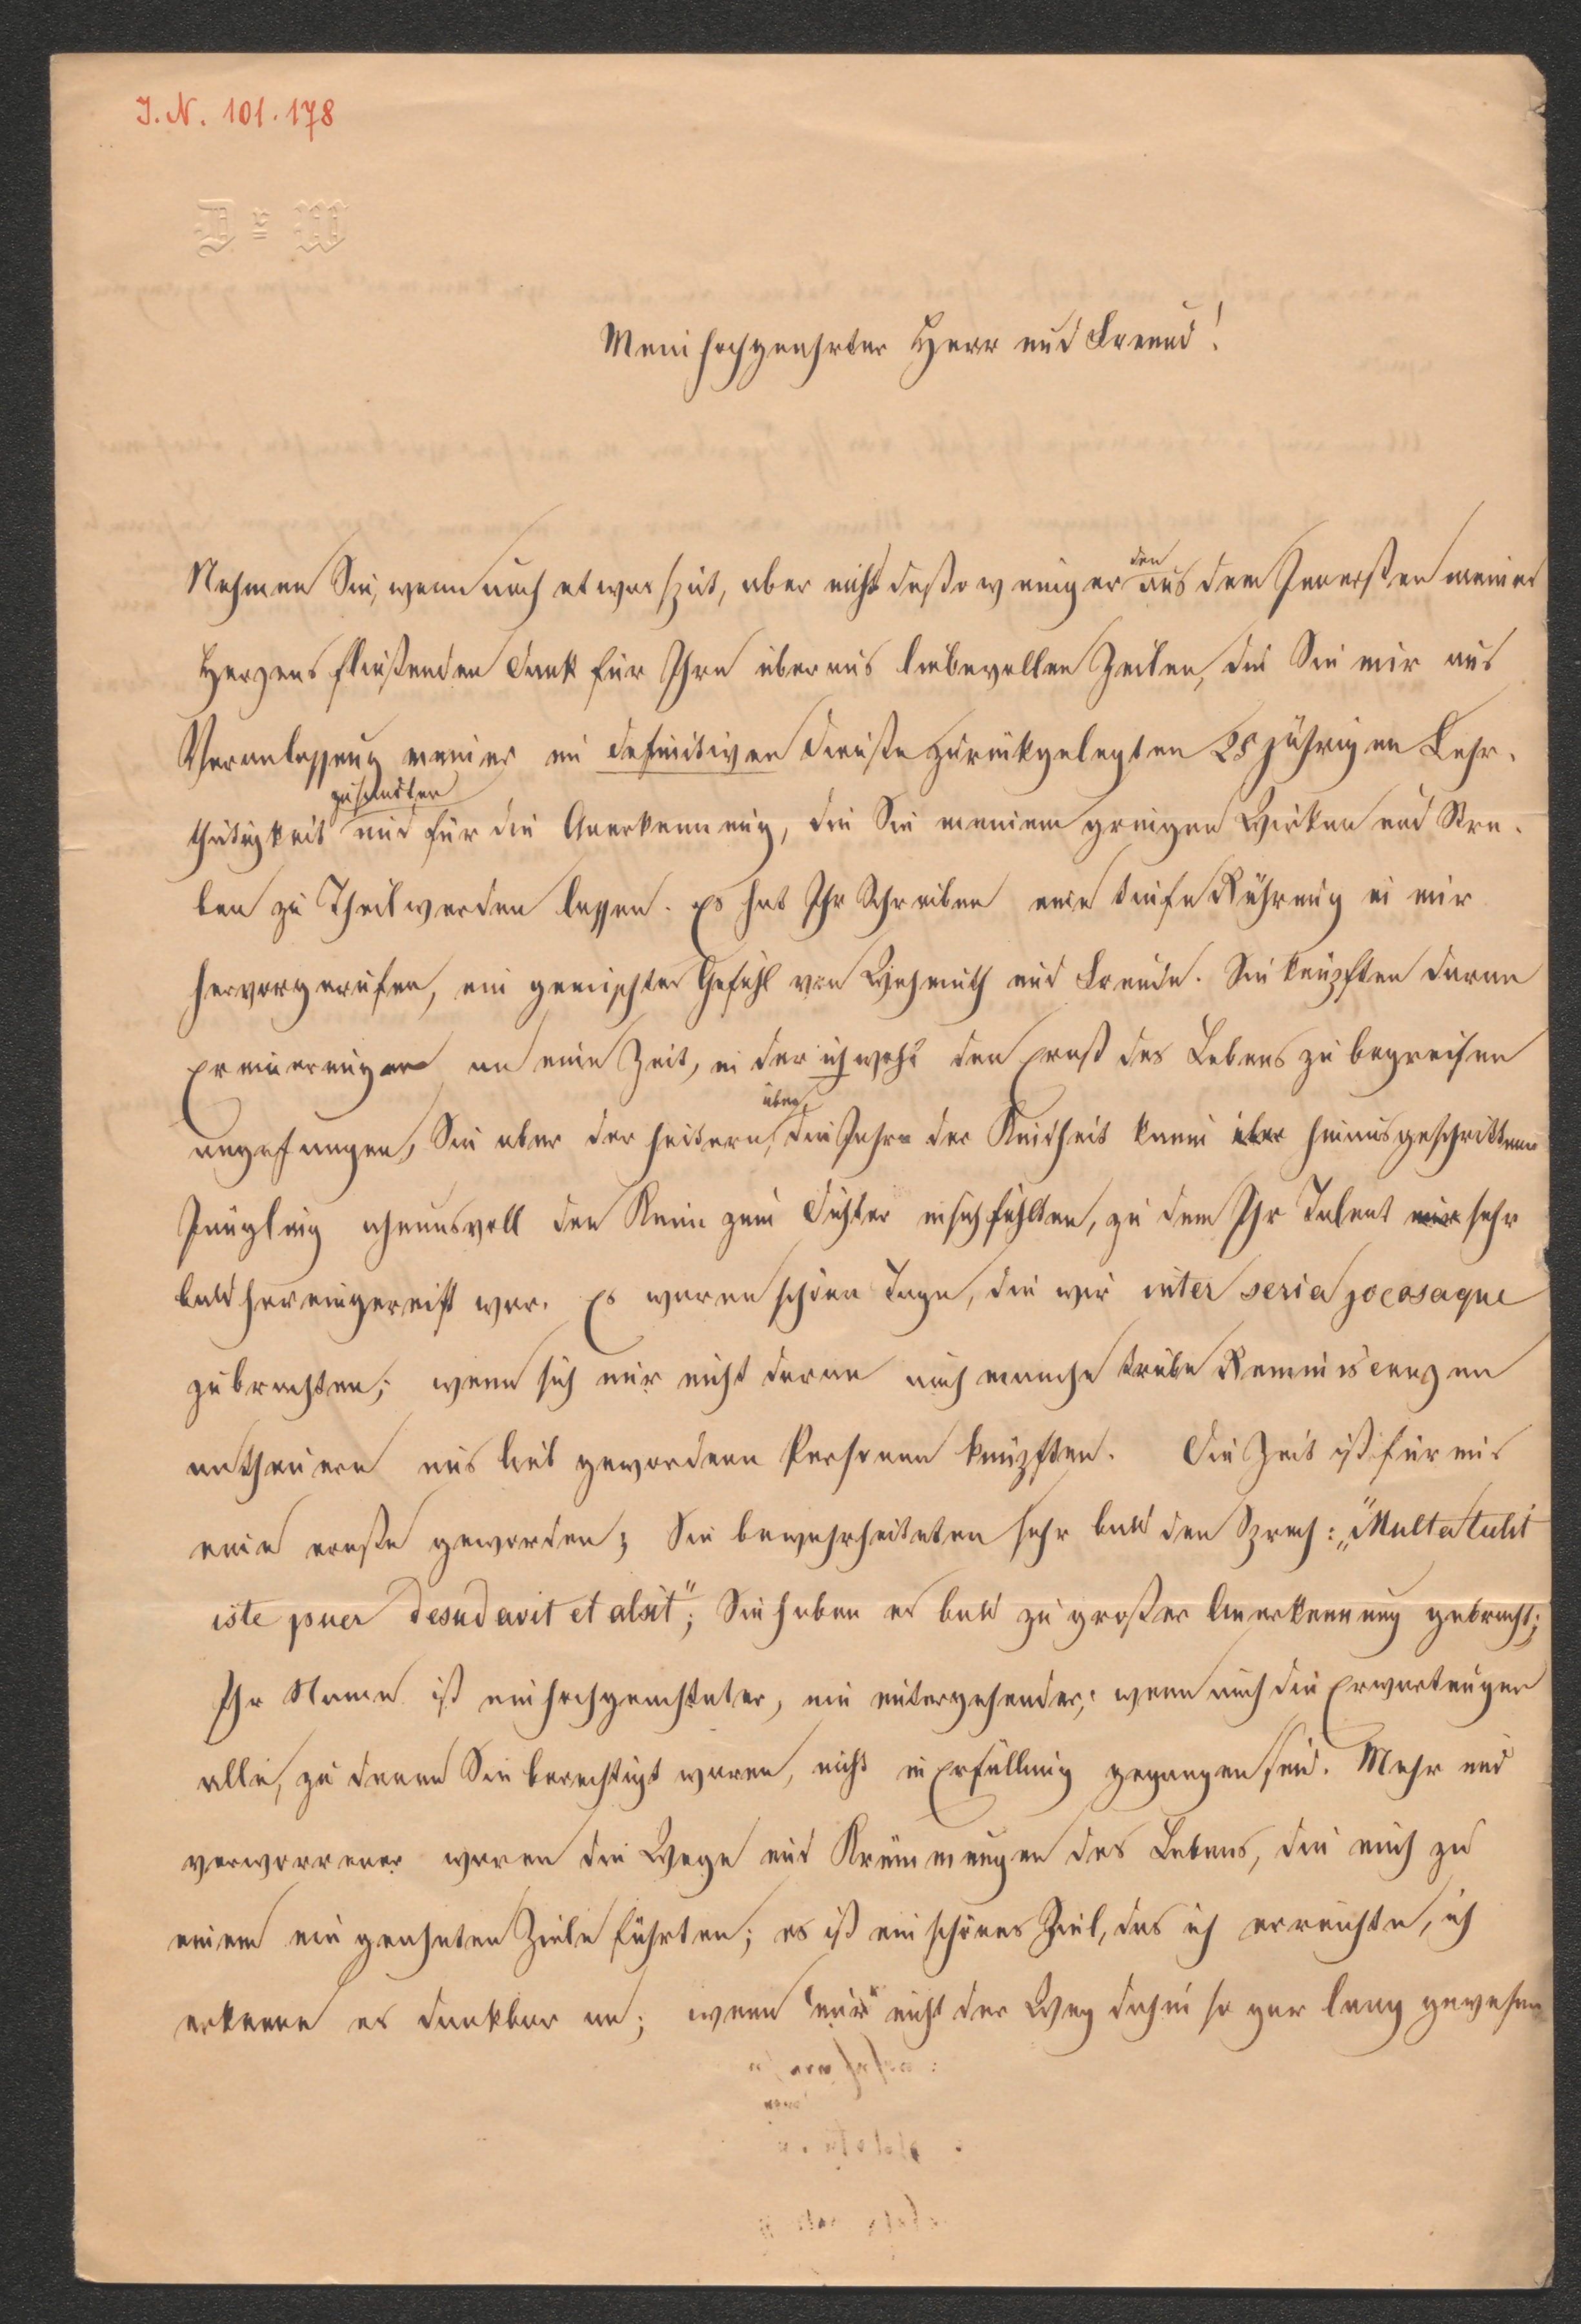 J. N. 101.178
Mein hochgeehrter Herr und Freund!
Nehmen Sie, wenn auch etwas spät, aber nicht destoweniger den aus dem Innersten meines
Herzens fließenden Dank für Ihre überaus liebevollen Zeilen, die Sie mir aus
Veranlassung meiner im definitiven Dienste zurückgelegten 25 jährigen Lehr-
thätigkeit zusandten und für die Anerkennung, die Sie meinem geringen Wirken und Stre-
ben zu Theil werden lassen. Es hat Ihr Schreiben eine tiefe Rührung in mir
hervorgerufen, ein gemischtes Gefühl von Wehmuth und Freude. Sie knüpften daran
Erinnerungen an eine Zeit, in der ich wohl den Ernst des Lebens zu begreifen
angefangen, Sie aber der heitern, über die Jahre der Kindheit kaum über hinausgeschrittene
Jüngling ahnunsvoll den Keim zum Dichter in sich fühlten, zu dem Ihr Talent nur sehr
bald herangereift war. Es waren schöne Tage, die wir inter seria jocosaque
zubrachten; wenn sich nur nicht daran auch manche trübe Reminiscenzen
an theuere uns lieb gewordene Personen knüpften. Die Zeit ist für uns
eine ernste geworden; Sie bewahrheiteten sehr bald den Spruch: „Multa tulit
iste puer desudavit et alsit"; Sie haben es bald zu großer Anerkennung gebracht;
Ihr Name ist ein hochgeachteter, ein untergehender; wenn auch die Erwartungen
alle, zu denen Sie berechtigt waren, nicht in Erfüllung gegangen sind. Mehr und
verworrener waren die Wege und Krümmungen des Lebens, die mich zu
einem nie geahnten Ziele führten; es ist ein schönes Ziel, das ich erreichte, ich
erkenne es dankbar an; wenn nur nicht der Weg dahin so gar lang gewesen